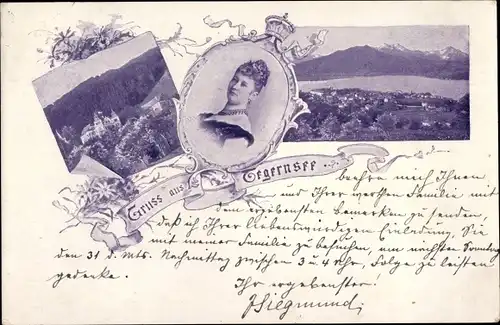 Gruss aus Tegernsee
beehre mich Ihnen
und Ihrer werthen Familie mit
dem ergebensten Bemerken zu senden,
daß ich Ihrer liebenswürdigen Einladung, Sie
mit meiner Familie zu besuchen, am nächsten Sonntag
den 31 d. Mts. Nachmittag zwischen 3 u 4 Uhr, Folge zu leisten
gedenke.
Ihr ergebenster:
Siegmund,